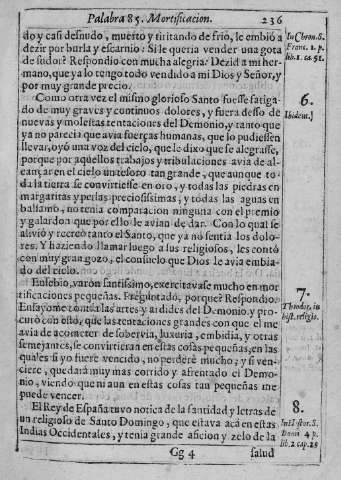 Palabra 85. Mortificacion. 236
do y casi desnudo, muerto y tiritando de frio, le embió a
dezir por burla y escarnio: Si le queria vender una gota
de sudor? Respondió con mucha alegria: Dezid a mi her-
mano, que ya lo tengo todo vendido a mi Dios y Señor, y
por muy grande precio.
In Chron. S.
Franc. 1. p.
lib. 1. ca. 51.
Como otra vez el mismo glorioso Santo fuesse fatiga-
do de muy graves y continuos dolores, y fuera desso de
nuevas y molestas tentaciones del Demonio, y tanto que
ya no parecia que avia fuerças humanas, que lo pudiessen
llevar, oyó una voz del cielo, que le dixo que se alegrasse,
porque por aquellos trabajos y tribulaciones avia de al-
cançar en el cielo un tesoro tan grande, que aunque to-
da la tierra se convirtiesse en oro, y todas las piedras en
margaritas y perlas preciosissimas, y todas las aguas en
balsamo, no tenia comparacion ninguna con el premio
y galardon que por ello le avian de dar. Con lo qual se
alivió y recreó tanto el Santo, que ya no sentia los dolo-
res. Y haziendo llamar luego a sus religiosos, les contó
con muy gran gozo, el consuelo que Dios le avia embia-
do del cielo.
6.
Ibidem.
Eusebio, varon santissimo, exercitavase mucho en mor
tificaciones pequeñas. Preguntado, porque? Respondio:
Ensayome contra las artes y ardides del Demonio, y pro-
curo con esto, que las tentaciones grandes con que el me
avia de acometer de sobervia, luxuria, embidia, y otras
semejantes, se convirtieran en estas cosas pequeñas, en las
quales si yo fuere vencido, no perderé mucho; y si ven-
ciere, quedará muy mas corrido y afrentado el Demo-
nio, viendo que ni aun en estas cosas tan pequeñas me
puede vencer.
7.
Theodor. in
hist. religio.
El Rey de España tuvo notica de la santidad y letras de
un religioso de Santo Domingo, que estava acá en estas
Indias Occidentales, y tenia grande aficion y zelo de la
8.
In Histor. S.
Domi 4 p.
lib. 2 cap. 25
Gg 4 salud